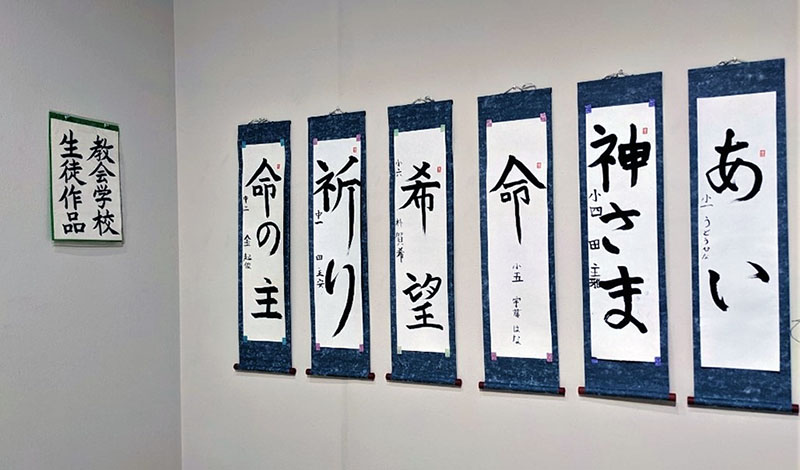 教会学校
生徒作品
あい
小一
神さま
小四
田
命
小五
宇留はな
希望
小六
朴賀善
祈り
中一
田
命の主
中二
金